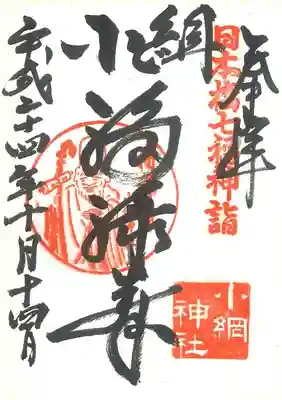 奉拝
日本橋七福神詣
小網
福禄寿
平成二十四年十月十四日
小網
神社